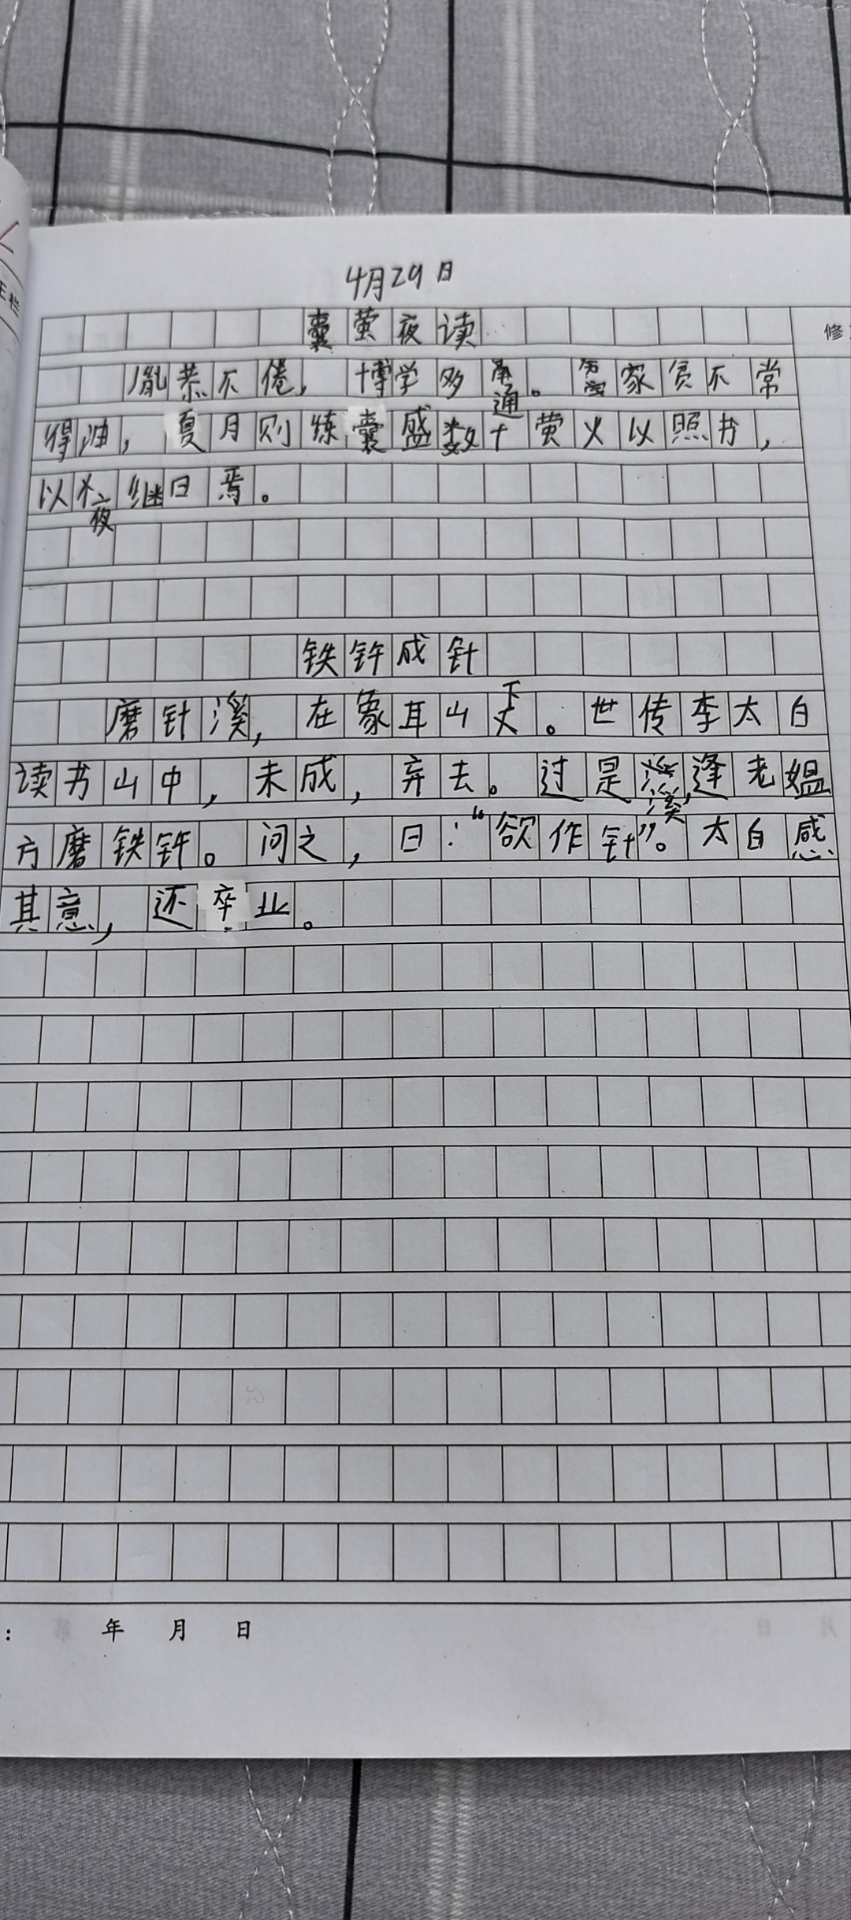 4月29日
囊萤夜读
修
胤恭不倦，博学多通。家贫不常
得油，夏月则练囊盛数十萤火以照书，
以夜继日焉。
铁杵成针
磨针溪，在象耳山下。世传李太白
读书山中，未成，弃去。过是溪，逢老媪
方磨铁杵。问之，曰：“欲作针”。太白感
其意，还卒业。
： 年 月 日